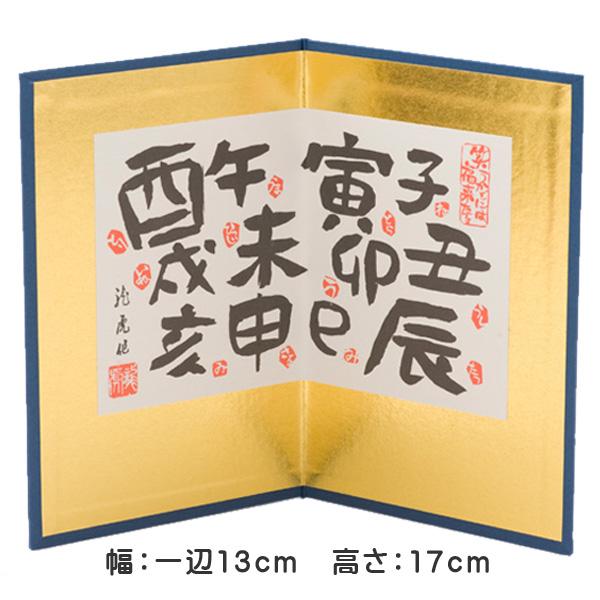 笑うかどには
福来たる
子丑辰
寅卯巳
午未申
酉戌亥
幅：一辺13cm　高さ：17cm